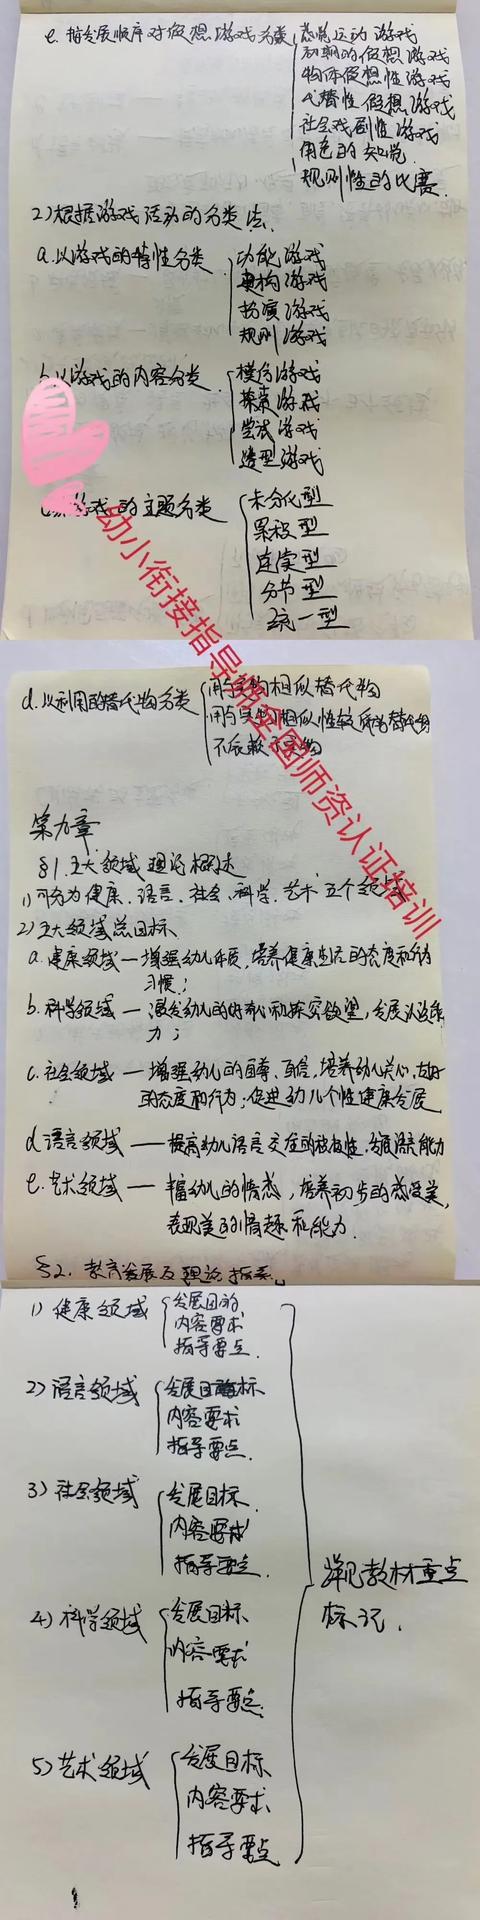 e. 按发展顺序对假想游戏分类
感觉运动游戏
初期的假想游戏
物体假想性游戏
代替性假想游戏
社会戏剧性游戏
角色的知觉
规则性的比赛
2) 根据游戏活动的分类法
a. 以游戏的特性分类
功能游戏
建构游戏
扮演游戏
规则游戏
b. 以游戏的内容分类
模仿游戏
探索游戏
尝试游戏
造型游戏
游戏的主题分类
未分化型
累积型
连续型
分节型
统一型
d. 以利用的替代物分类
用与实物相似替代物
用与实物相似性较低的替代物
不依赖于实物
幼小衔接指导师全国师资认证培训
第九章
§1. 五大领域理论概述
1) 可分为健康、语言、社会、科学、艺术五个领域
2) 五大领域总目标
a. 健康领域 — 增强幼儿体质,培养健康生活的态度和行为
习惯;
b. 科学领域 — 激发幼儿的好奇心和探究欲望,发展认识能
力;
c. 社会领域 — 增强幼儿的自尊、自信,培养幼儿关心、友好
的态度和行为;促进幼儿个性健康发展
d. 语言领域 — 提高幼儿语言交往的积极性、发展语言能力
e. 艺术领域 — 丰富幼儿的情感,培养初步的感受美,
表现美的情趣和能力.
§2. 教育发展及理论指导
1) 健康领域
发展目的
内容要求
指导要点.
2) 语言领域
发展目标
内容要求
指导要点.
3) 社会领域
发展目标.
内容要求
指导要点.
4) 科学领域
发展目标
内容要求
指导要点.
5) 艺术领域
发展目标
内容要求
指导要点
详见教材重点
标记.